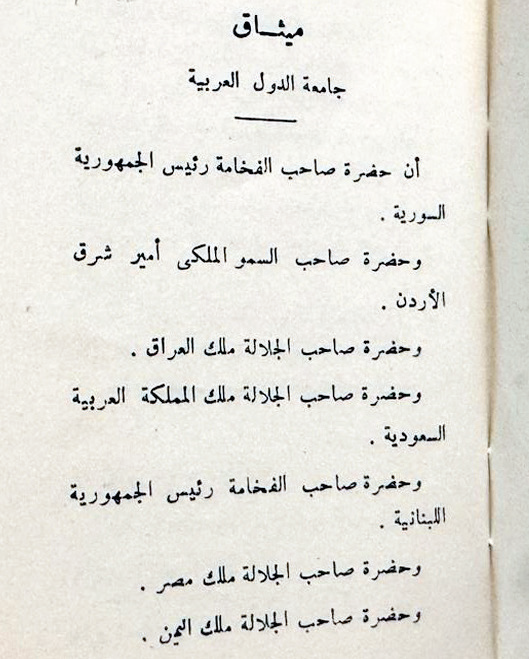 ميثـاق
جامعة الدول العربية
أن حضرة صاحب الفخامة رئيس الجمهورية
السورية .
وحضرة صاحب السمو الملكى أمير شرق
الأردن .
وحضرة صاحب الجلالة ملك العراق .
وحضرة صاحب الجلالة ملك المملكة العربية
السعودية .
وحضرة صاحب الفخامة رئيس الجمهورية
اللبنانية .
وحضرة صاحب الجلالة ملك مصر .
وحضرة صاحب الجلالة ملك اليمن .